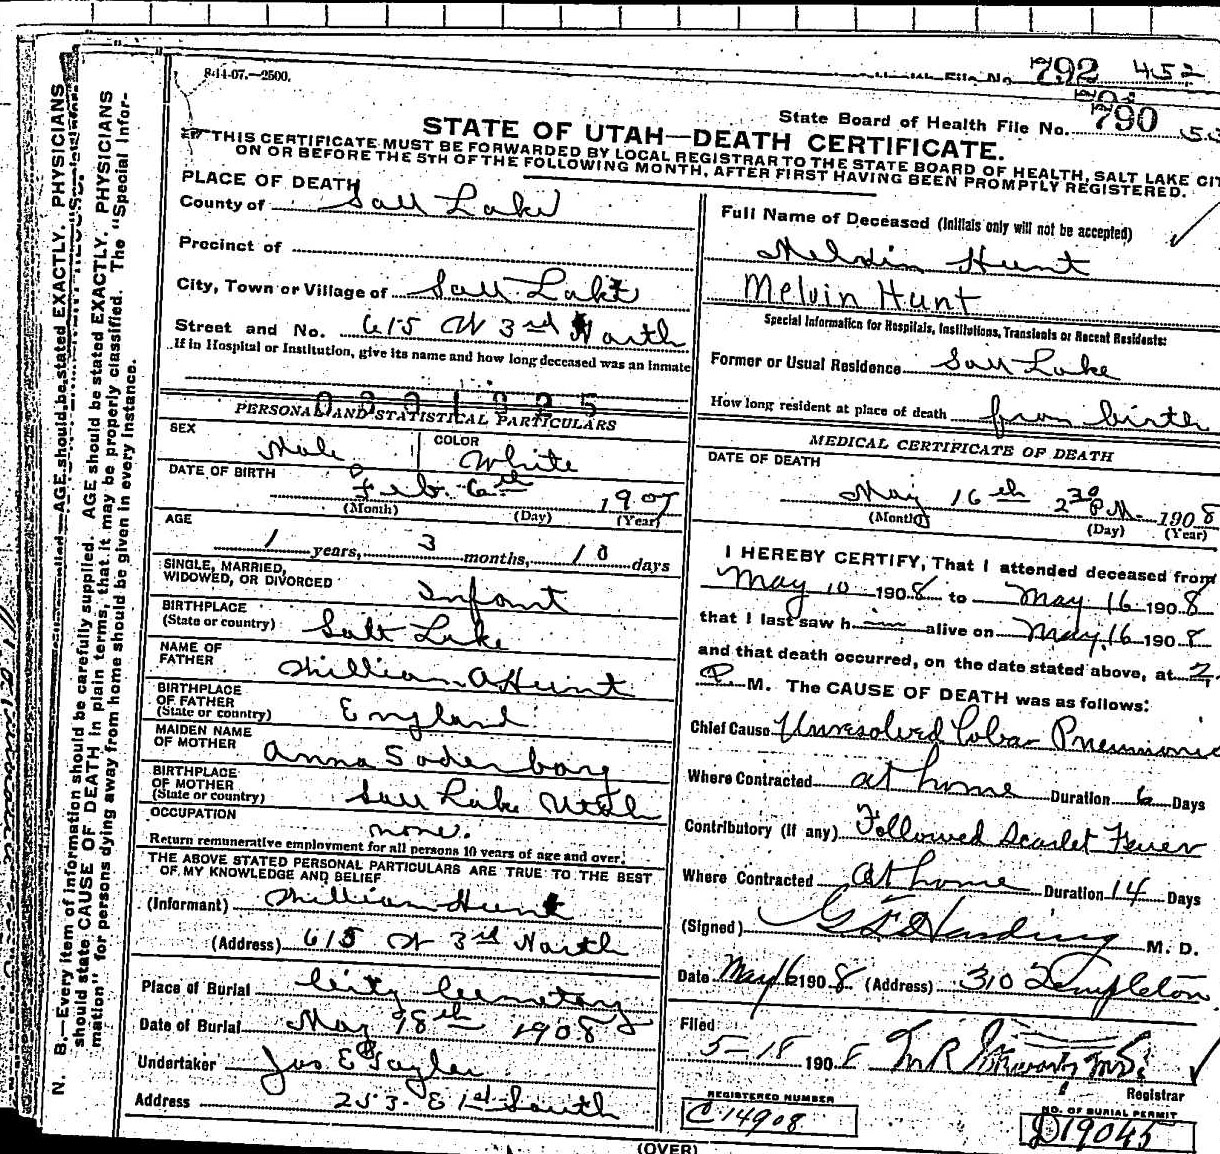 8-14-07.—2500.
Health File No. 792 452
State Board of Health File No. 790
STATE OF UTAH—DEATH CERTIFICATE.
THIS CERTIFICATE MUST BE FORWARDED BY LOCAL REGISTRAR TO THE STATE BOARD OF HEALTH, SALT LAKE CIT
ON OR BEFORE THE 5TH OF THE FOLLOWING MONTH, AFTER FIRST HAVING BEEN PROMPTLY REGISTERED.
PLACE OF DEATH
County of Salt Lake
Precinct of
City, Town or Village of Salt Lake
Street and No. 615 W 3rd North
If in Hospital or Institution, give its name and how long deceased was an inmate
0301325
PERSONAL AND STATISTICAL PARTICULARS
SEX Male COLOR White
DATE OF BIRTH
Feb. 6th 1907
(Month) (Day) (Year)
AGE
1 years, 3 months, 10 days
SINGLE, MARRIED,
WIDOWED, OR DIVORCED Infant
BIRTHPLACE
(State or country) Salt Lake
NAME OF
FATHER William A Hunt
BIRTHPLACE
OF FATHER
(State or country) England
MAIDEN NAME
OF MOTHER Anna Soderborg
BIRTHPLACE
OF MOTHER
(State or country) Salt Lake Utah
OCCUPATION
none.
Return remunerative employment for all persons 10 years of age and over.
THE ABOVE STATED PERSONAL PARTICULARS ARE TRUE TO THE BEST
OF MY KNOWLEDGE AND BELIEF
(Informant) William Hunt
(Address) 615 W 3rd North
Place of Burial City Cemetery
Date of Burial May 18th 1908
Undertaker Jos E Taylor
Address 253. E 1st South
Full Name of Deceased (Initials only will not be accepted)
Melvin Hunt
Melvin Hunt
Special Information for Hospitals, Institutions, Transients or Recent Residents:
Former or Usual Residence Salt Lake
How long resident at place of death from birth
MEDICAL CERTIFICATE OF DEATH
DATE OF DEATH
May 16th 2 30 P.M. 1908
(Month) (Day) (Year)
I HEREBY CERTIFY, That I attended deceased from
May 10 1908 to May 16 1908
that I last saw h im alive on May 16 1908
and that death occurred, on the date stated above, at 2
P. M. The CAUSE OF DEATH was as follows:
Chief Cause Unresolved Lobar Pneumonia
Where Contracted at home Duration 6 Days
Contributory (If any) Followed Scarlet Fever
Where Contracted at home Duration 14 Days
(Signed) G F Harding M. D.
Date May 16 1908 (Address) 310 Templeton
Filed
5-18 1908 M R Stewart M.D.
Registrar
REGISTERED NUMBER
C 14908
NO. OF BURIAL PERMIT
D19045
(OVER)
N. B.—Every item of information should be carefully supplied. AGE should be stated EXACTLY. PHYSICIANS
should state CAUSE OF DEATH in plain terms, that it may be properly classified. The "Special Infor-
mation" for persons dying away from home should be given in every instance.